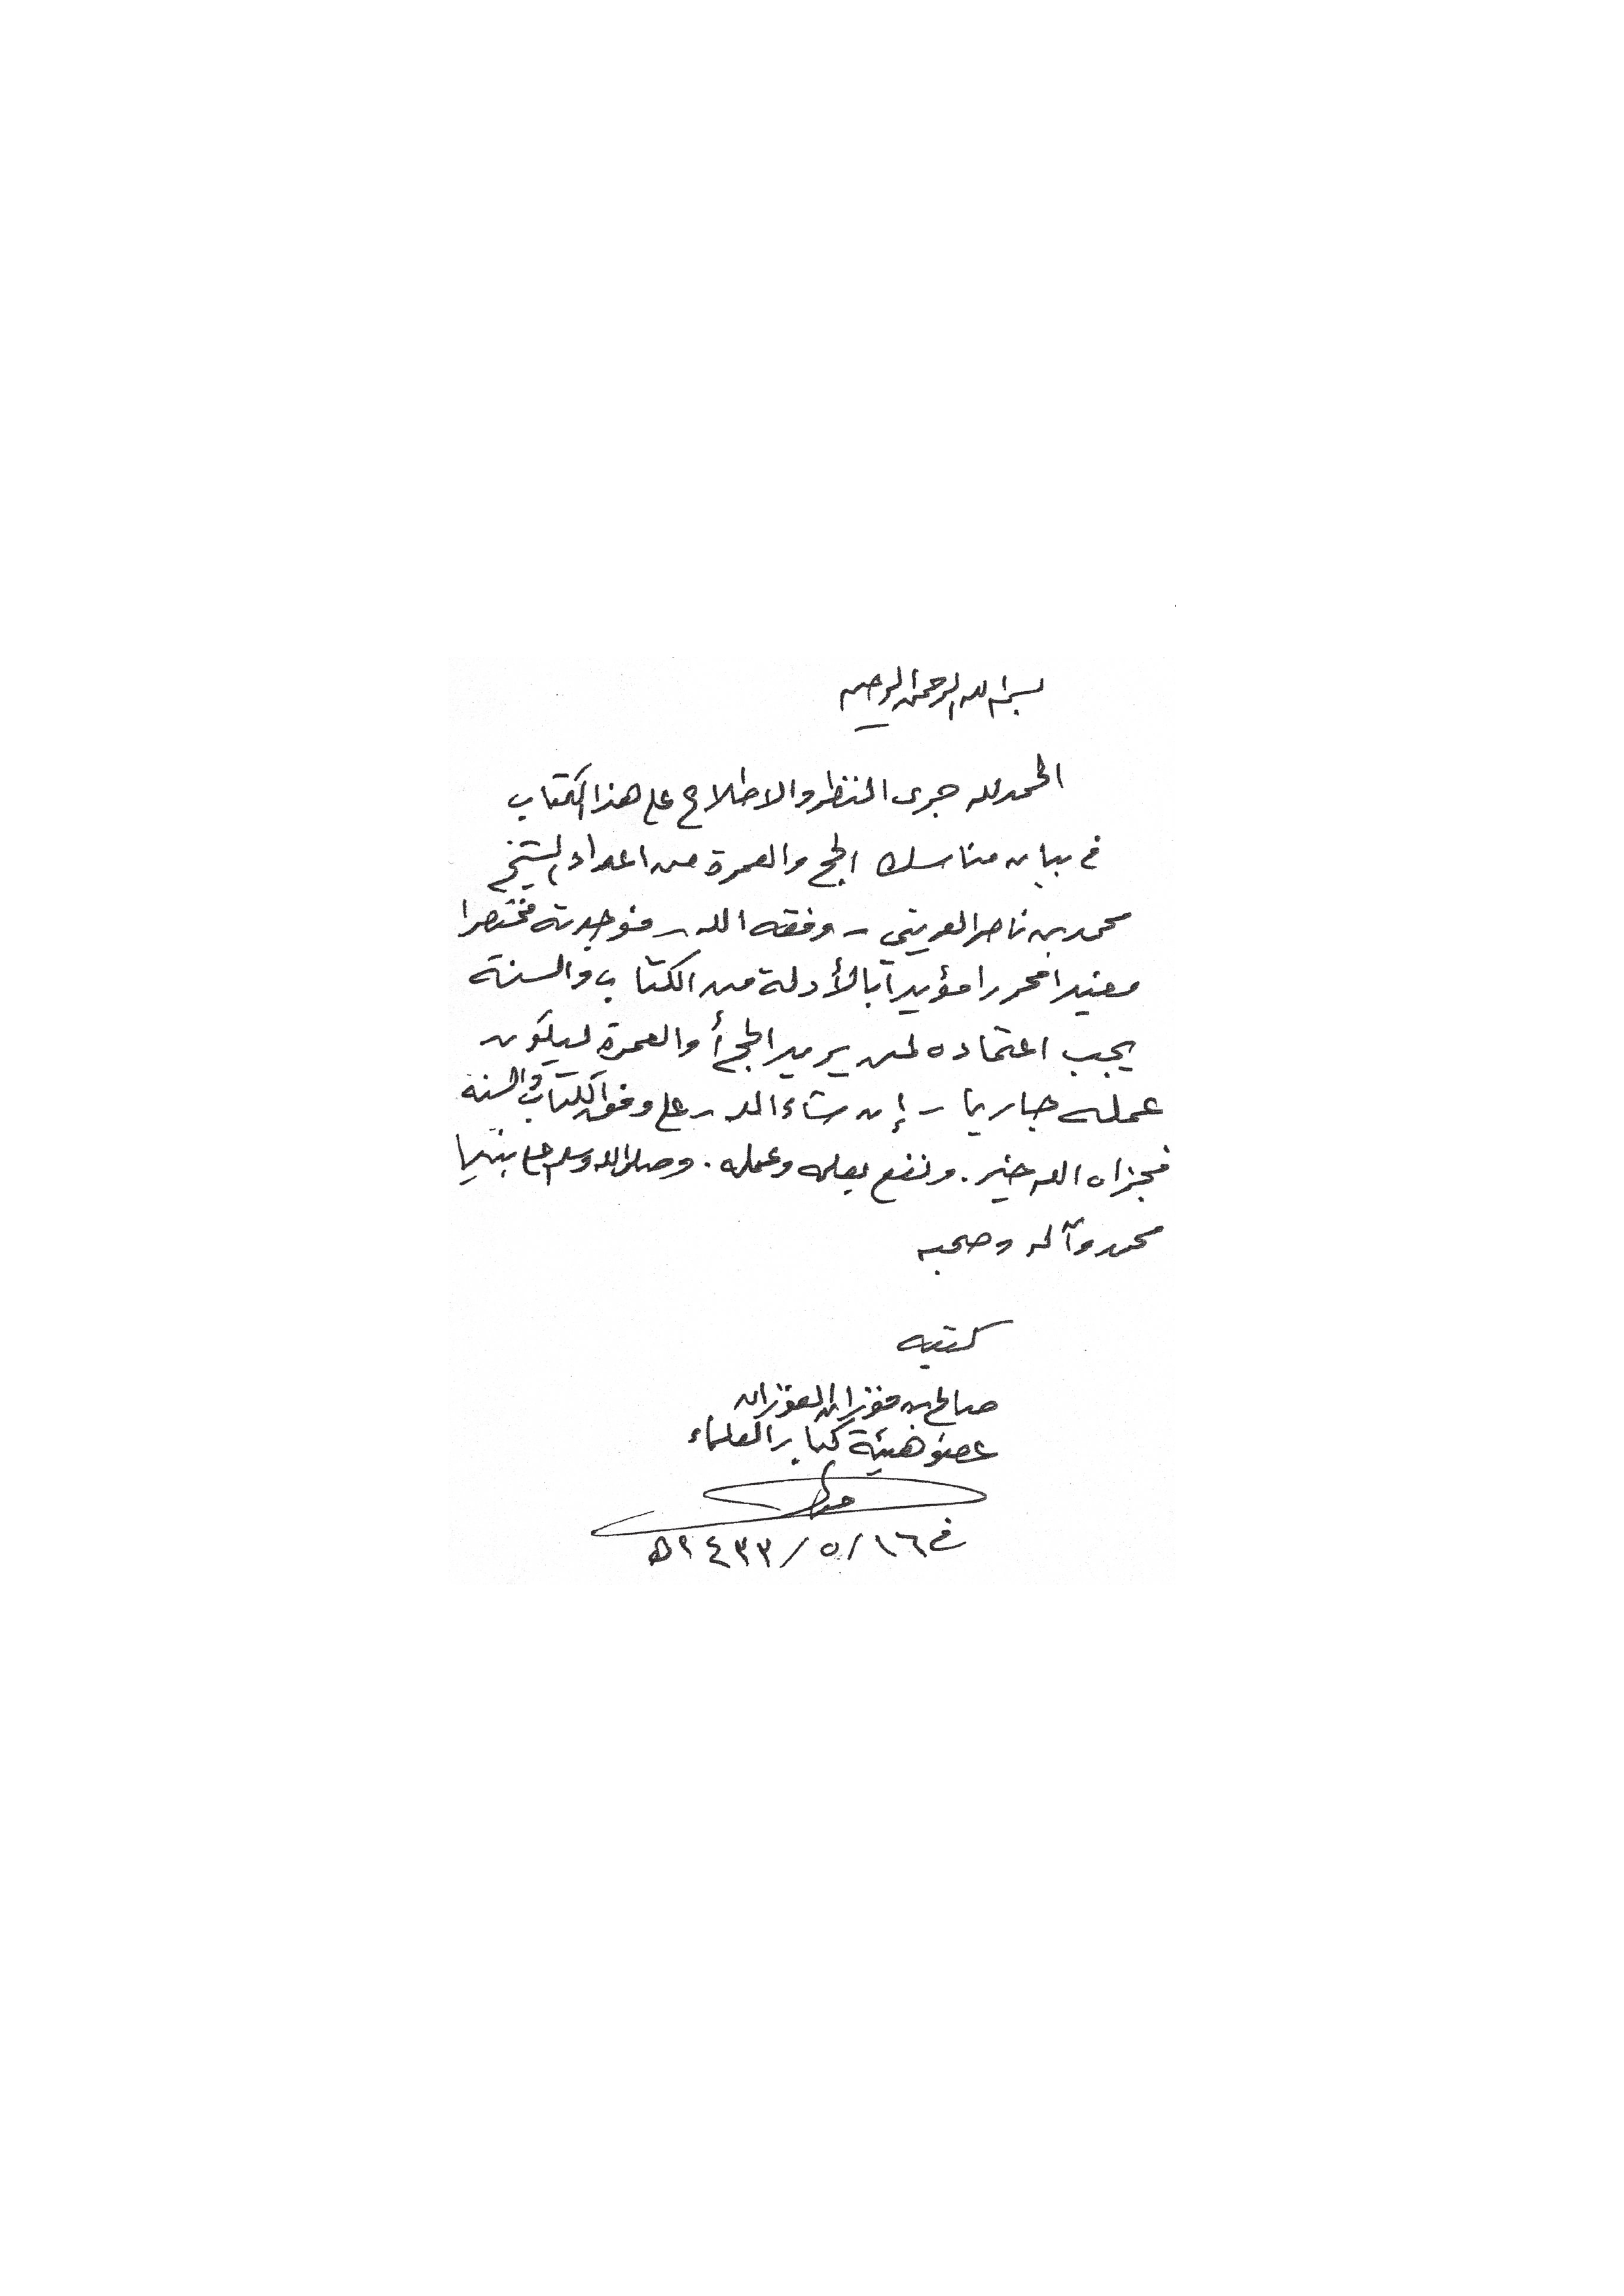 بسم الله الرحمن الرحيم
الحمد لله جرى النظر والاطلاع على هذا الكتاب
في بيان مناسك الحج والعمرة من اعداد الشيخ
محمد بن ناصر العريني - وفقه الله - فوجدته مختصرا
مفيدا محررا مؤيداً بالأدلة من الكتاب والسنة
يجب اعتماده لمن يريد الحج أو العمرة ليكون
عمله جاريا - إن شاء الله - على وفق الكتاب والسنة
فجزاه الله خير . ونفع بعلمه وعمله . وصلى الله وسلم على نبينا
محمد وآله وصحبه
كتبه
صالح بن فوزان الفوزان
عضو هيئة كبار العلماء
في ١٦/ ٥/ ١٤٣٣هـ